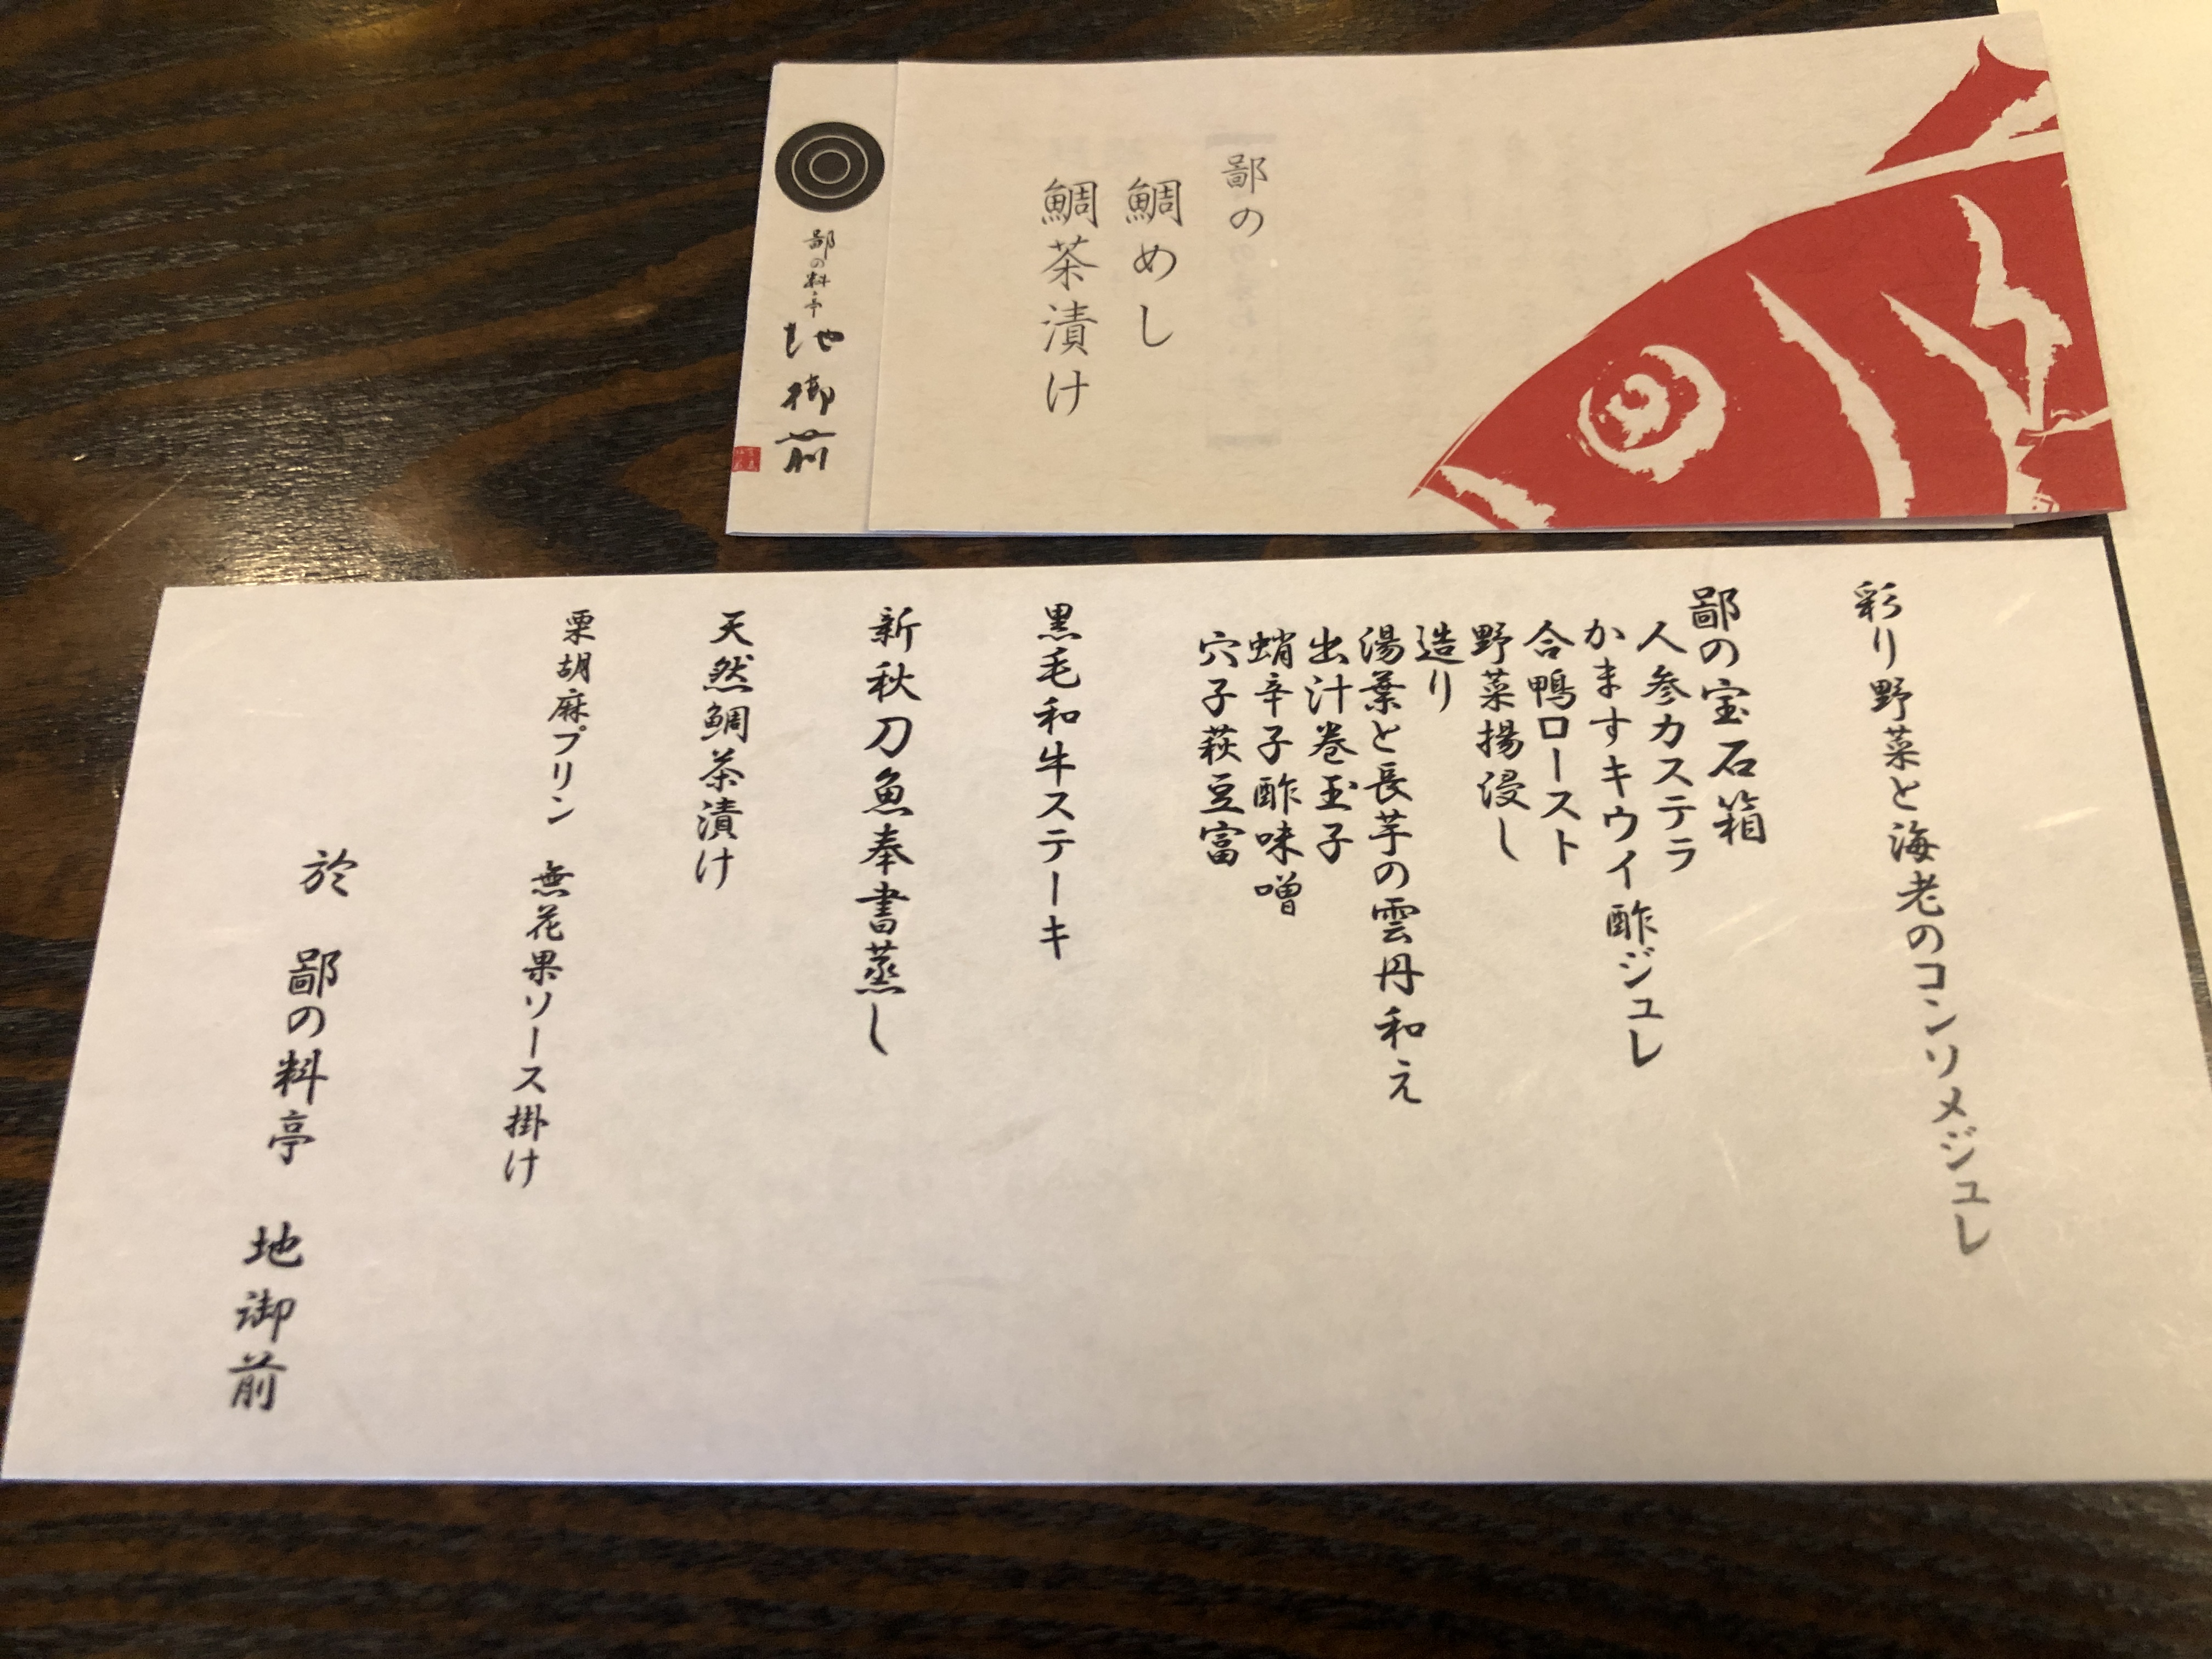 鄙の
鯛めし
鯛茶漬け
鄙の料亭
地御前
彩り野菜と海老のコンソメジュレ
鄙の宝石箱
人参カステラ
かますキウイ酢ジュレ
合鴨ロースト
野菜揚浸し
造り
湯葉と長芋の雲丹和え
出汁巻玉子
蛸辛子酢味噌
穴子萩豆富
黒毛和牛ステーキ
新秋刀魚奉書蒸し
天然鯛茶漬け
栗胡麻プリン 無花果ソース掛け
於 鄙の料亭 地御前